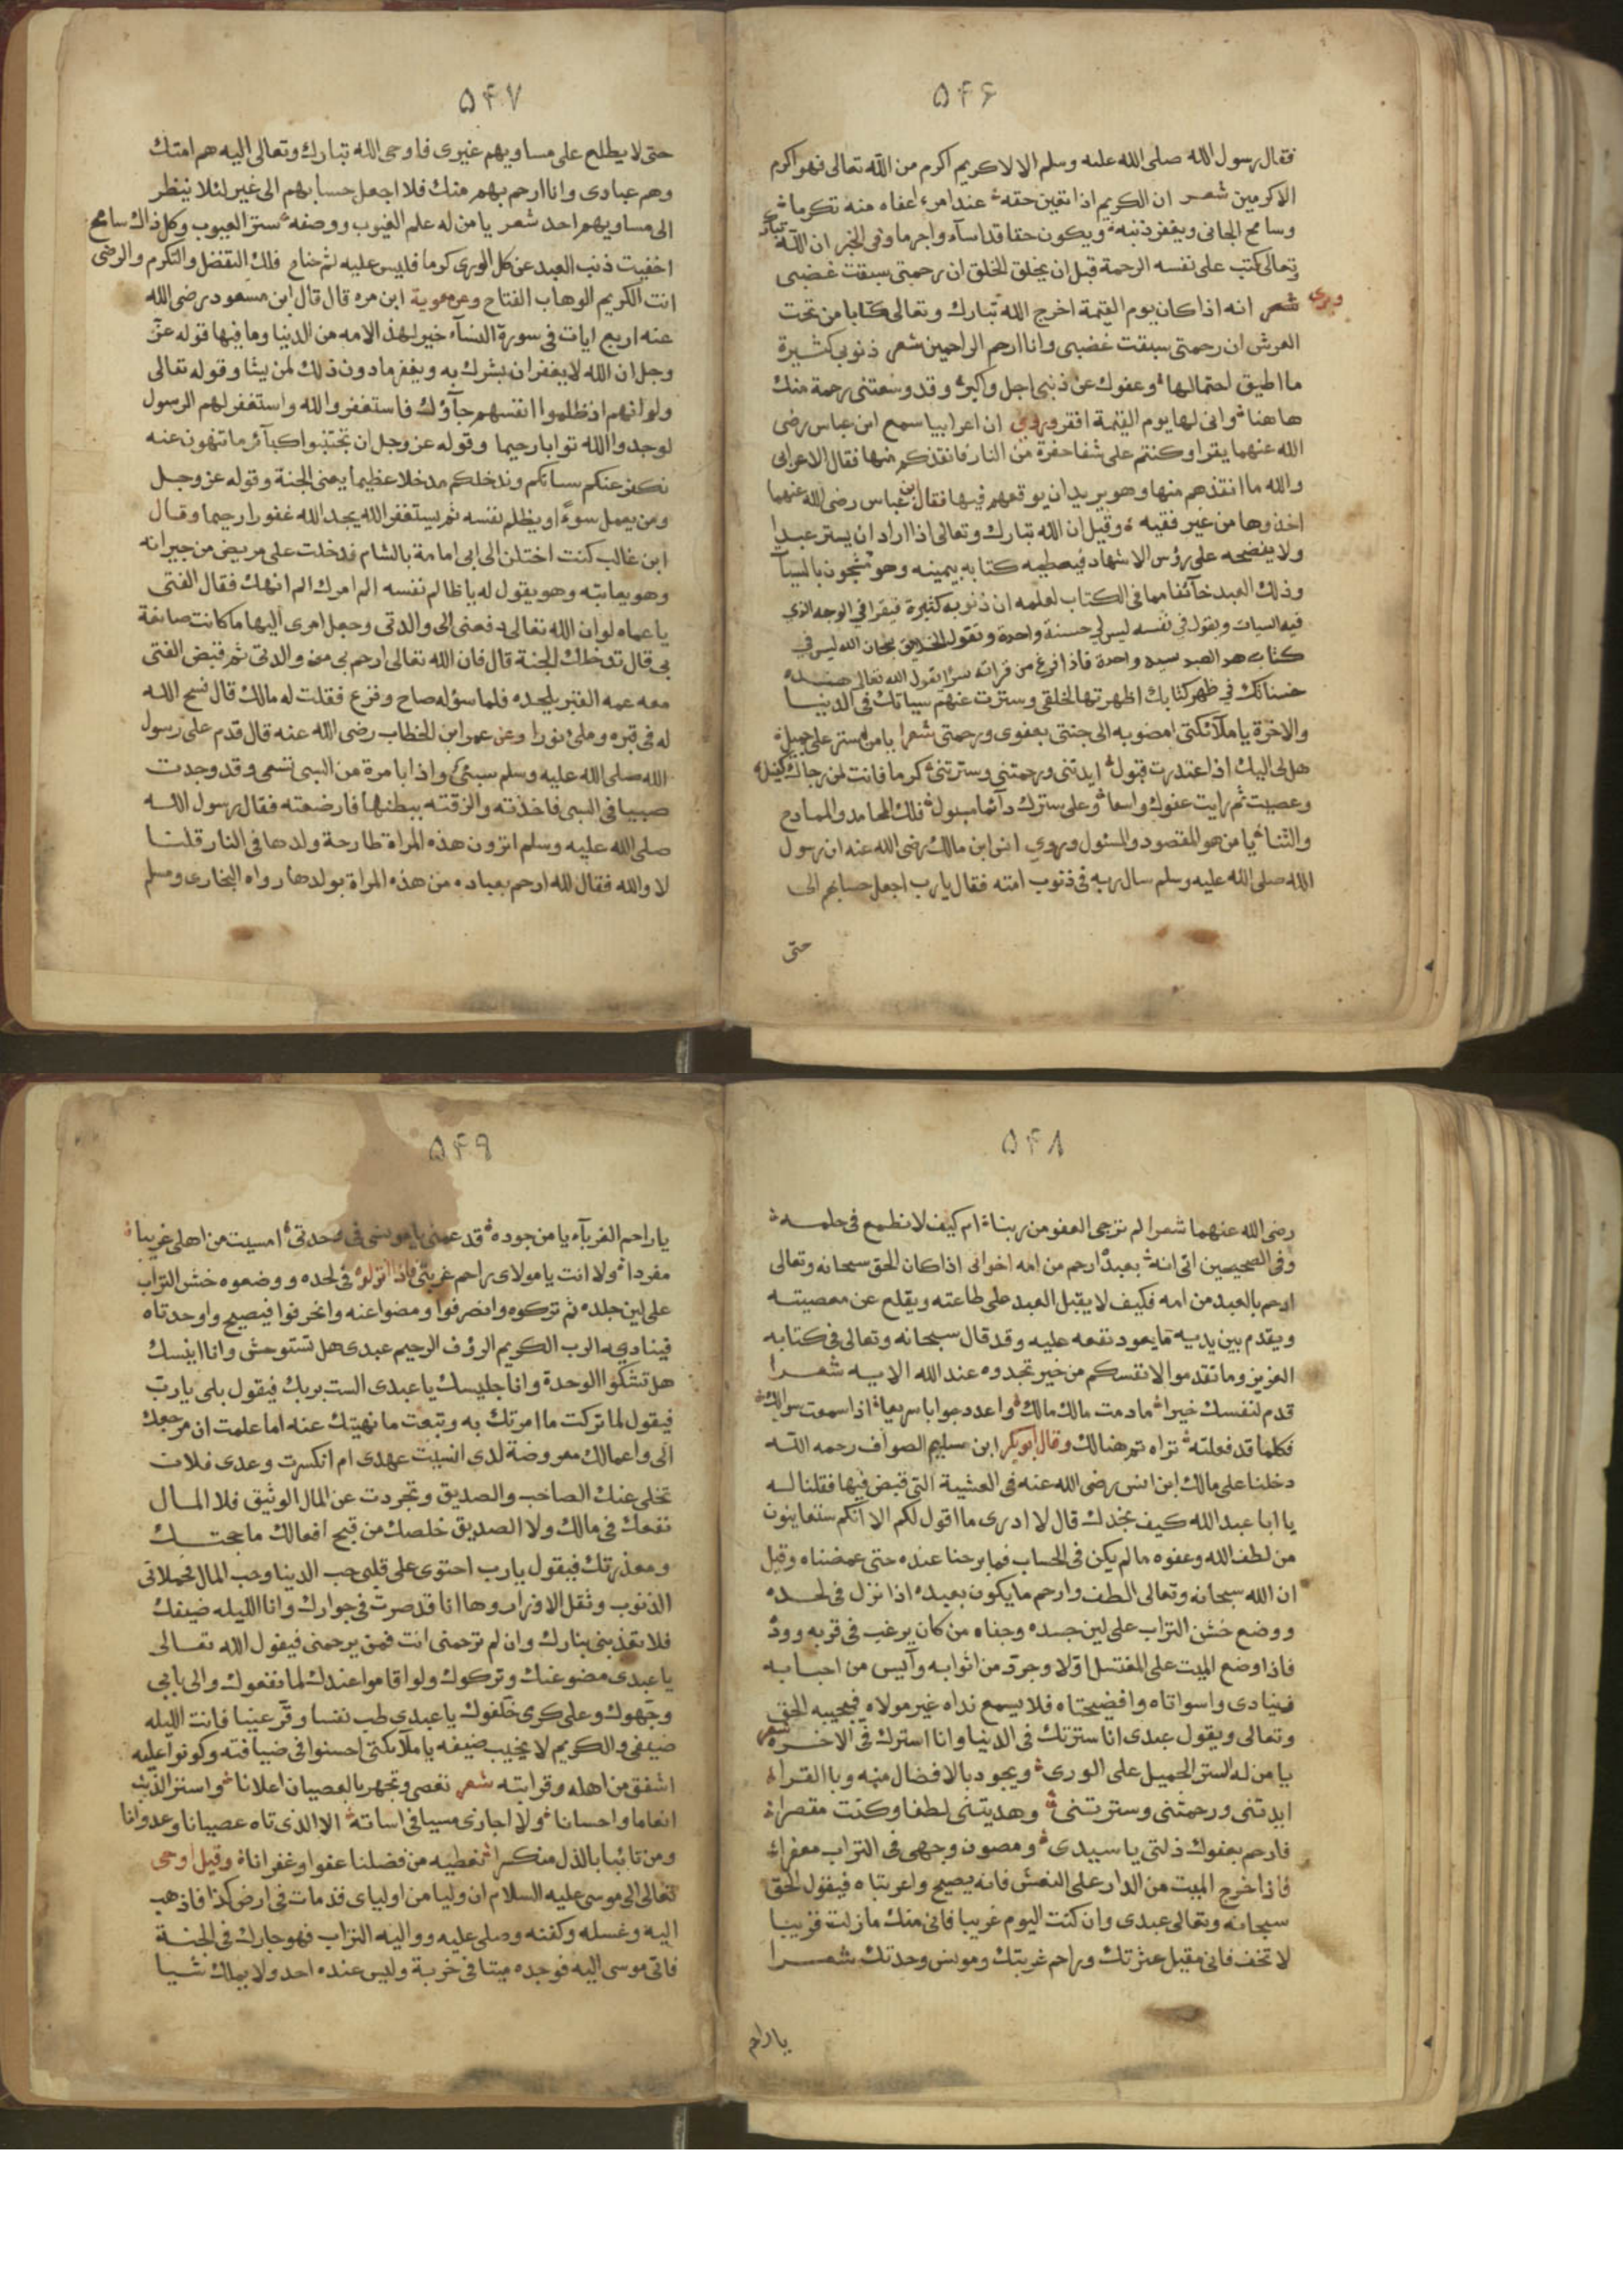 ۵۴۶
فقال رسول الله صلى الله عليه وسلم الا لا كريم اكرم من الله تعالى فهو اكرم
الاكرمين شعر ان الكريم اذا تقين حقه عند امرء اعفاه منه تكرما
وسامح الجانى ويغفر ذنبه ويكون حقا قد اسآء واجرما وفى الخبر ان الله تبارك
وتعالى كتب على نفسه الرحمة قبل ان يخلق الخلق ان رحمتى سبقت غضبى
وروى شعر انه اذا كان يوم القيمة اخرج الله تبارك وتعالى كتابا من تحت
العرش ان رحمتى سبقت غضبى وانا ارحم الراحمين شعر ذنوبى كثيرة
ما اطيق احتمالها وعفوك عن ذنبى اجل واكبر وقد وسعتنى رحمة منك
هاهنا وانى لها يوم القيمة افقر وروي ان اعرابيا سمع ابن عباس رضى
الله عنهما يقرا وكنتم على شفا حفرة من النار فانقذكم منها فقال الاعرابى
والله ما انقذهم منها وهو يريد ان يوقعهم فيها فقال ابن عباس رضى الله عنهما
اخذوها من غير فقيه وقيل ان الله تبارك وتعالى اذا اراد ان يستر عبدا
ولا يفضحه على رؤس الاشهاد فيعطيه كتابه بيمينه وهو مشجون بالسيآ
وذلك العبد خآئفا مما فى الكتاب لعلمه ان ذنوبه كثيرة فيقرا في الوجه الذي
فيه السيات ويقول في نفسه ليس لي حسنة واحدة وتقول الخلايق سبحان الله ليس في
كتاب هذا العبد سيه واحدة فاذا فرغ من قراته سرا يقول الله تعالى
حسناتك في ظهر كتابك اظهرتها لخلقى وسترت عنهم سياتك فى الدنيا
والاخرة يا ملآئكتى امضو به الى جنتى بعفوى ورحمتى شعرا يا من ستر على جميله
هل لى اليك اذا اعتذرت قبول ايدتنى ورحمتنى وسترتنى كرما فانت لمن رجاك كفيل
وعصيت ثم رايت عفوك واسعا وعلى سترك دآئما مسبول فلك المحامد والممادح
والثنا يا من هو المقصود والمسئول وروي انس ابن مالك رضى الله عنه ان رسول
الله صلى الله عليه وسلم سال ربه فى ذنوب امته فقال يارب اجعل حسابهم الى
حتى
۵۴۷
حتى لا يطلع على مساويهم غيرى فاوحى الله تبارك وتعالى اليه هم امتك
وهم عبادى وانا ارحم بهم منك فلا اجعل حسابهم الى غير لئلا ينظر
الى مساويهم احد شعر يا من له علم الغيوب ووصفه ستر العيوب وكل ذاك سامح
اخفيت ذنب العبد عن كل الورى كرما فليس عليه ثم جناح فلك التفضل والتكرم والرضى
انت الكريم الوهاب الفتاح وعن معوية ابن مره قال قال ابن مسعود رضى الله
عنه اربع ايات فى سورة النسآء خير لهذه الامه من الدنيا وما فيها قوله عز
وجل ان الله لا يغفر ان يشرك به ويغفر ما دون ذلك لمن يشا وقوله تعالى
ولو انهم اذ ظلموا انفسهم جآؤك فاستغفروا الله واستغفر لهم الرسول
لوجدوا الله توابا رحيما وقوله عز وجل ان تجتنبوا كبآئر ما تنهون عنه
نكفر عنكم سياتكم وندخلكم مدخلا عظيما يعنى الجنة وقوله عز وجل
ومن يعمل سوءً او يظلم نفسه ثم يستغفر الله يجد الله غفورا رحيما وقال
ابن غالب كنت اختلف الى ابى امامة بالشام فدخلت على مريض من جيرانه
وهو يعاتبه وهو يقول له يا ظالم نفسه الم امرك الم انهك فقال الفتى
يا عماه لو ان الله تعالى دفعنى الى والدتى وجعل امرى اليها ما كانت صانعة
بى قال تدخلك الجنة قال فان الله تعالى ارحم بى من والدتى ثم قبض الفتى
معه عمه القبر يلحده فلما سؤله صاح وفزع فقلت له مالك قال فسح الله
له فى قبره وملئ نورا وعن عمر ابن الخطاب رضى الله عنه قال قدم على رسول
الله صلى الله عليه وسلم سبئ واذا بامرة من السبى تسعى وقد وجدت
صبيا فى السبى فاخذته والزقته ببطنها فارضعته فقال رسول الله
صلى الله عليه وسلم اترون هذه المراة طارحة ولدها فى النار قلنا
لا والله فقال لله ارحم بعباده من هذه المراة بولدها رواه البخارى ومسلم
۵۴۸
رضى الله عنهما شعرا لم نرجى العفو من ربنا ام كيف لا نطمع فى حلمه
وفى الصحيحين اتى انه بعبده ارحم من امه اخوانى اذا كان الحق سبحانه وتعالى
ارحم بالعبد من امه فكيف لا يقبل العبد على طاعته ويقلع عن معصيته
ويقدم بين يديه ما يعود نفعه عليه وقد قال سبحانه وتعالى فى كتابه
العزيز وما تقدموا لانفسكم من خير تجدوه عند الله الايه شعرا
قدم لنفسك خيرا مادمت مالك مالك واعدد جوابا سريعا اذا سمعت سوالك
فكلما قد فعلته تراه ثم هنالك وقال ابوبكر ابن سليم الصواف رحمه الله
دخلنا على مالك ابن انس رضى الله عنه فى العشية التى قبض فيها فقلنا له
يا ابا عبد الله كيف نجدك قال لا ادرى ما اقول لكم الا انكم ستعاينون
من لطف الله وعفوه مالم يكن فى الحساب فما برحنا عنده حتى غمضناه وقيل
ان الله سبحانه وتعالى الطف وارحم ما يكون بعبده اذا نزل فى لحده
ووضع خشن التراب على لين جسده وجفاه من كان يرغب فى قربه ووده
فاذا وضع الميت على المغتسل اولا وجرد من اثوابه وآيس من احبابه
فينادى واسواتاه وافضيحتاه فلا يسمع نداه غير مولاه فيجيبه الحق
وتعالى ويقول عبدى انا سترتك فى الدنيا وانا استرك فى الاخره شعر
يا من له الستر الجميل على الورى ويجود بالافضال منه وبا القرا
ايدتنى ورحمتنى وسترتنى وهديتنى لطفا وكنت مقصرا
فارحم بعفوك ذلتى يا سيدى ومصون وجهى فى التراب معفرا
فاذا خرج الميت من الدار على النعش فانه يصيح واغربتاه فيقول الحق
سبحانه وتعالى عبدى وان كنت اليوم غريبا فانى منك مازلت قريبا
لا تخف فانى مقيل عثرتك وراحم غربتك ومونس وحدتك شعرا
يا راحم
۵۴۹
يا راحم الغربآء يا من جوده قد عمنى يا مونسى فى وحدتى امسيت من اهلى غريبا
مفردا ولا انت يا مولاى راحم غربتى فاذا انزلوه فى لحده ووضعوه خشن التراب
على لين جلده ثم تركوه وانصرفوا ومضوا عنه وانحرفوا فيصيح واوحدتاه
فيناديه الرب الكريم الرؤف الرحيم عبدى هل تستوحش وانا انيسك
هل تشكوا الوحدة وانا جليسك يا عبدى الست بربك فيقول بلى يارب
فيقول لما تركت ما امرتك به وتبعت ما نهيتك عنه اما علمت ان مرجعك
الى واعمالك معروضة لدى انسيت عهدى ام انكرت وعدى فلان
تخلى عنك الصاحب والصديق وتجردت عن المال الوثيق فلا المال
نفعك فى مالك ولا الصديق خلصك من قبيح افعالك ما حجتك
ومعذرتك فيقول يارب احتوى على قلبى حب الدينا وحب المال فحملانى
الذنوب وثقل الاوزار وها انا قد صرت فى جوارك وانا الليله ضيفك
فلا تعذبنى بنارك وان لم ترحمنى انت فمن يرحمنى فيقول الله تعالى
يا عبدى مضو عنك وتركوك ولو اقاموا عندك لما نفعوك والى بابى
وجهوك وعلى كرمى خلفوك يا عبدى طب نفسا وقر عينا فانت الليله
ضيفى والكريم لا يخيب ضيفه يا ملآئكتى احسنوا فى ضيافته وكونوا عليه
اشفق من اهله وقرابته شعر تعصى وتجهر بالعصيان اعلانا واستر الذنب
انعاما واحسانا ولا اجازى مسيا فى اساته الا الذى تاه عصيانا وعدوانا
ومن تائبا بالذل منكسرا نعطيه من فضلنا عفوا وغفرانا وقيل اوحى
تعالى الى موسى عليه السلام ان وليا من اولياى قد مات فى ارض كذا فاذهب
اليه وغسله وكفنه وصلى عليه وواليه التراب فهو جارك فى الجنة
فاتى موسى اليه فوجده ميتا فى خربة وليس عنده احد ولا يملك شيا